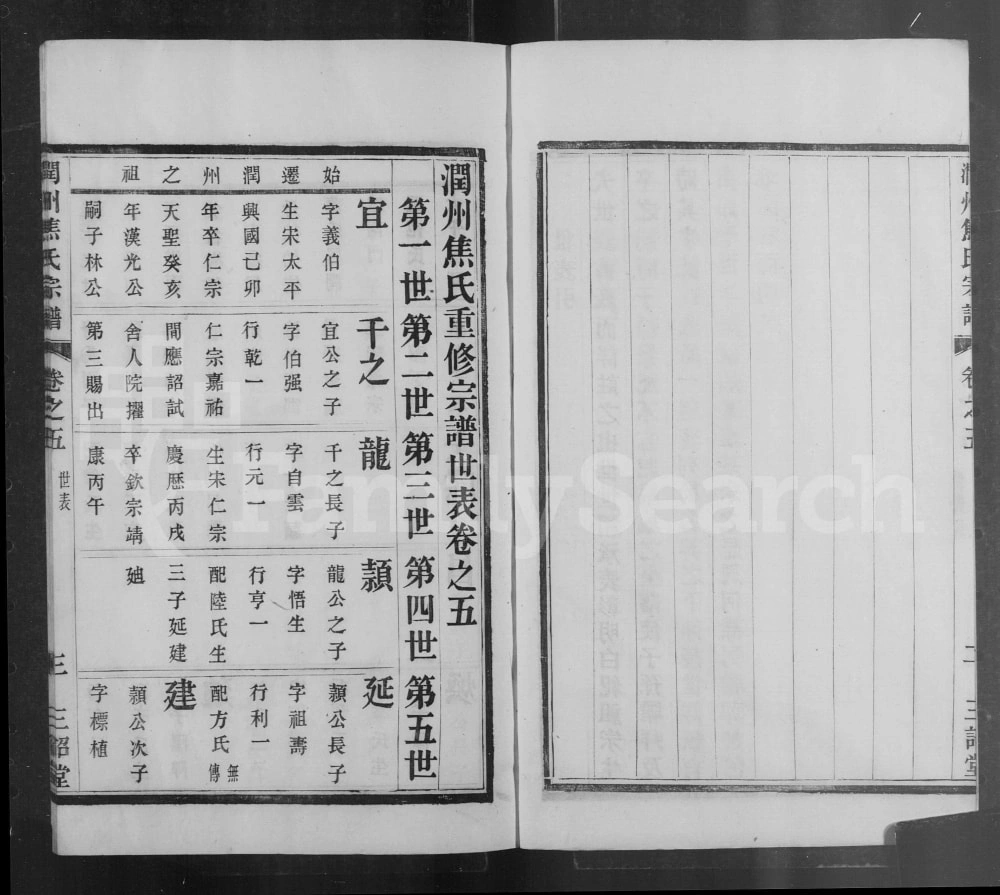 潤州焦氏宗譜 卷之五 二 三詔堂
潤州焦氏重修宗譜世表卷之五
第一世 第二世 第三世 第四世 第五世
始遷潤州之祖
宜
字義伯
生宋太平
興國己卯
年卒仁宗
天聖癸亥
年漢光公
嗣子林公
千之
宜公之子
字伯强
行乾一
仁宗嘉祐
間應詔試
舍人院擢
第三賜出
龍
千之長子
字自雲
行元一
生宋仁宗
慶厯丙戌
卒欽宗靖
康丙午
頴
龍公之子
字悟生
行亨一
配陸氏生
三子延建
廸
延
頴公長子
字祖壽
行利一
配方氏無傳
建
頴公次子
字標植
潤州焦氏宗譜 卷之五 世表 三 三詔堂
FamilySearch